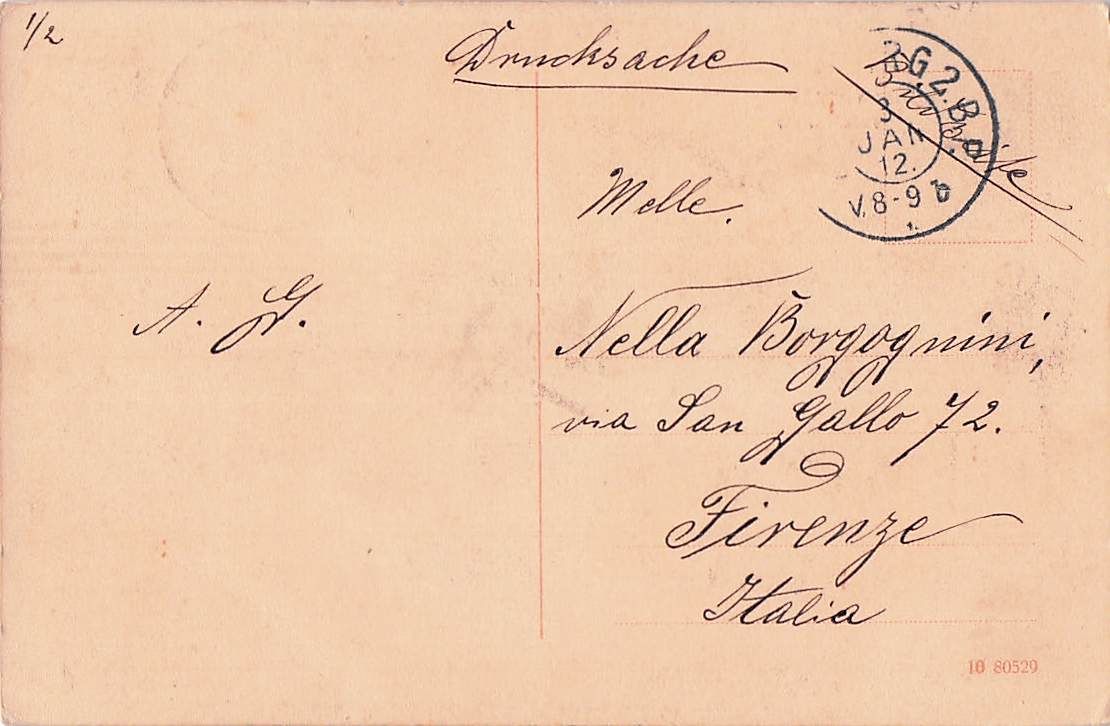 1/2
Drucksache
G.2.B
3
JAN
12.
V.8-9
Melle.
A. G.
Nella Borgognini,
via San Gallo 72.
Firenze
Italia
10 80529